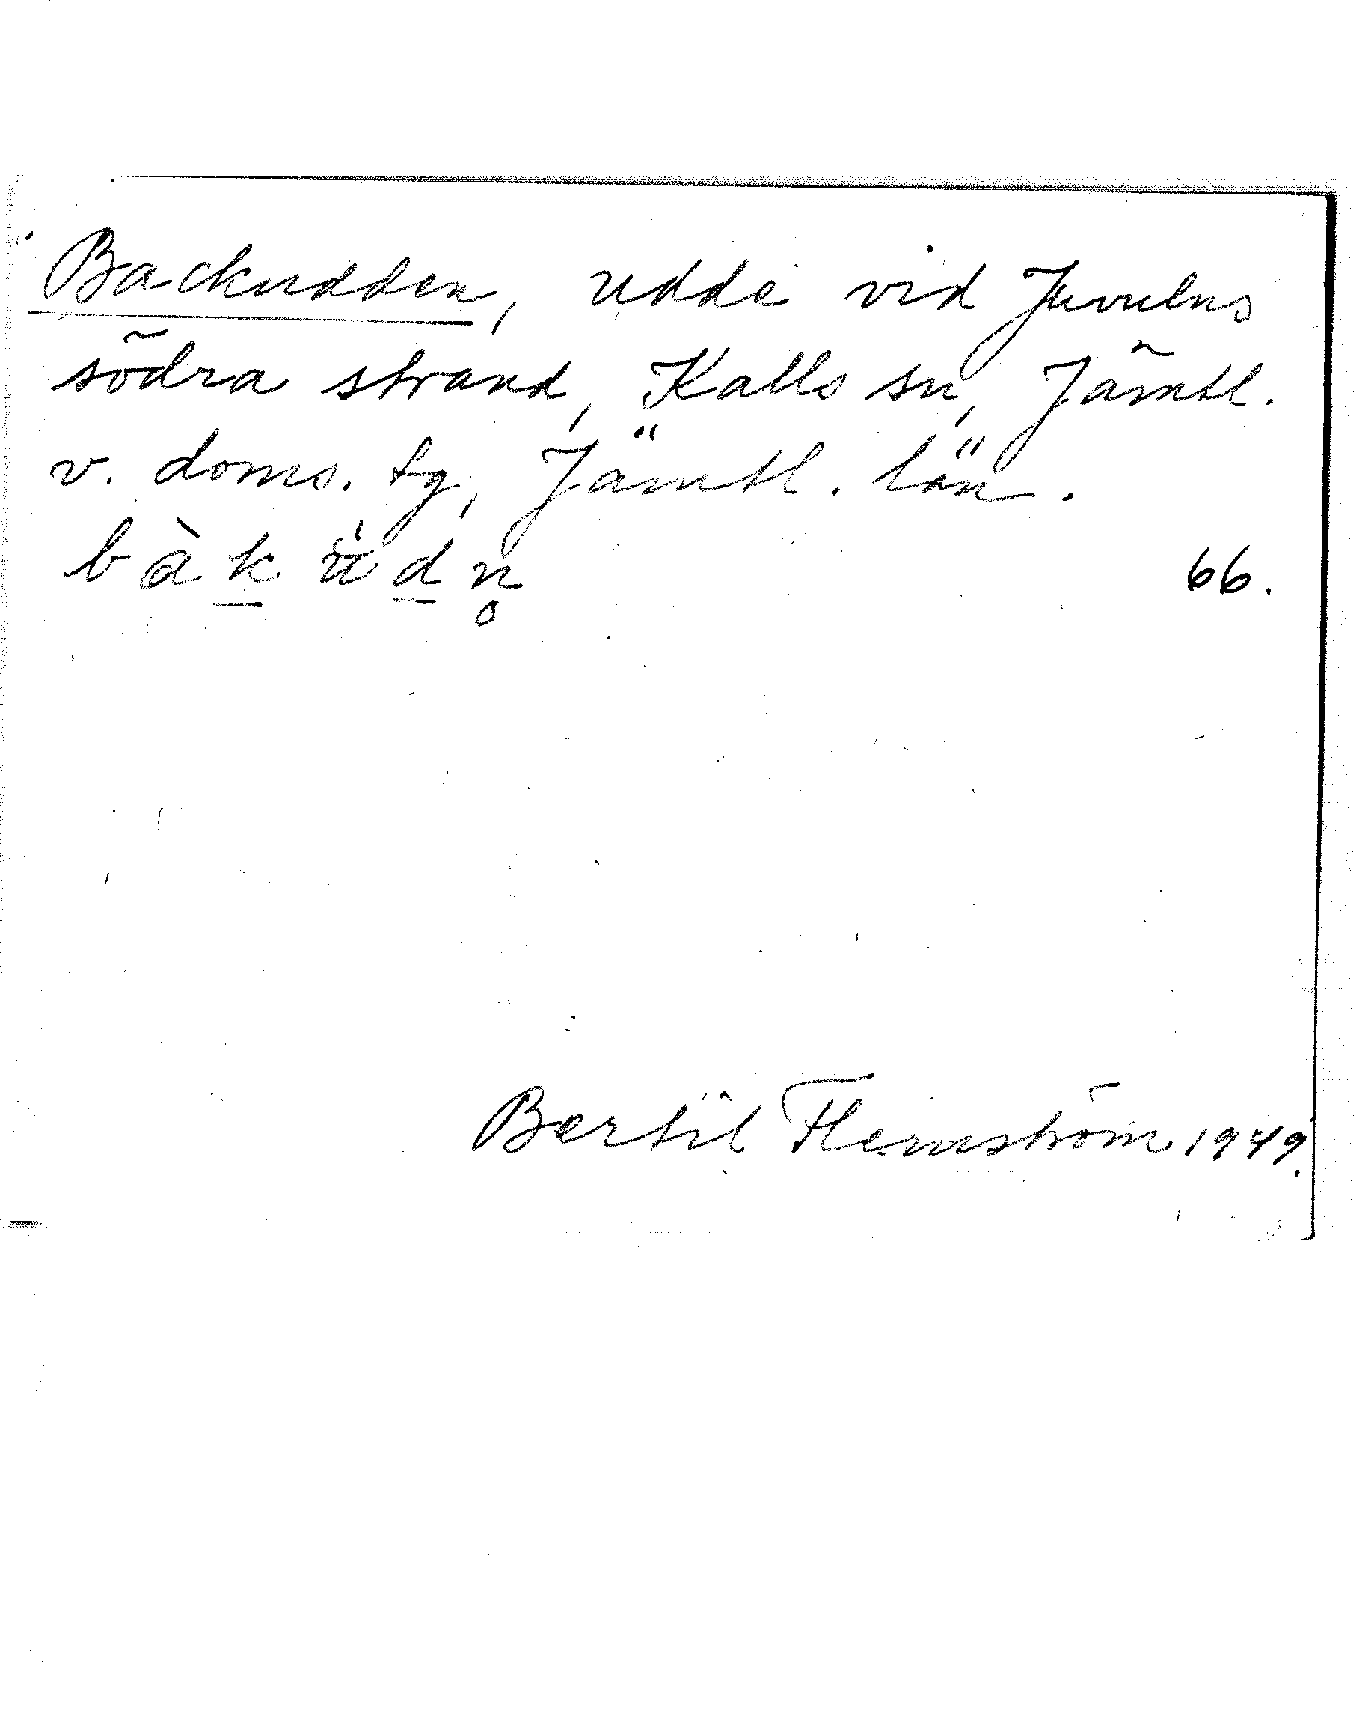 Backudden, udde vid Juvulns
södra strand, Kalls sn, Jämtl.
v. doms. tg, Jämtl. län.
bàk̲ùd̲n̥ 66.
Bertil Flemström 1949.